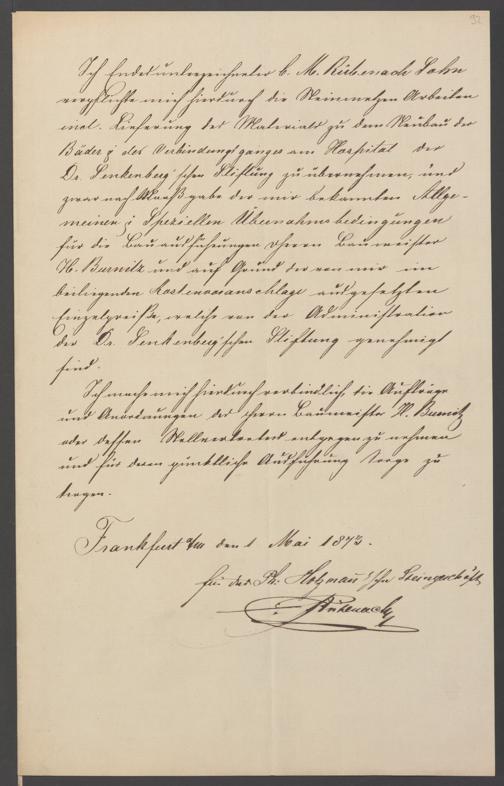 92
Ich Endesunterzeichneter b. M. Rübenach Sohn
verpflichte mich hierdurch die Steinmetzen Arbeiten
incl. Lieferung des Materials zu dem Neubau der
Bäder & des Verbindungsganges am Hospital der
Dr. Senkenberg'schen Stiftung zu übernehmen, und
zwar nach Maaßgabe der mir bekannten Allge-
meinen & Speziellen Übernahmsbedingungen
für die Bauausführungen Herrn Baumeister
H. Burnitz und auf Grund der von mir im
beiliegenden Kostenvoranschlage ausgesetzten
Einzelpreiße, welche von der Administration
der Dr. Senkenberg'schen Stiftung genehmigt
sind.
Ich mache mich hierdurch verbindlich, die Aufträge
und Anordnungen des Herrn Baumeister H. Burnitz
oder dessen Stellvertreters entgegen zu nehmen
und für deren pünktliche Ausführung Sorge zu
tragen.
Frankfurt a/M den 1 Mai 1873.
für das Ph. Holzmann'sche Steingeschäft
Rübenach